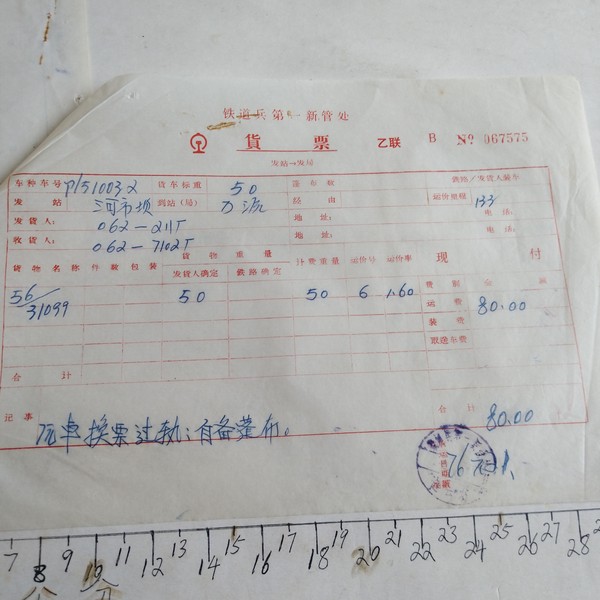 铁道兵第一新管处
货票 乙联 B Nº 067575
发站→发局
车种车号 P/510032 货车标重 50 篷布数 铁路/发货人装车
发站 河市坝 到站(局) 万源 经由 运价里程 133
发货人: 062-211T 地址: 电话:
收货人: 062-7102T 地址: 电话:
货物名称 件数 包装 货物重量 计费重量 运价号 运价率 现付
发货人确定 铁路确定 费别 金额
56/31099 50 50 6 1.60 运费 80.00
装费
取送车费
合计
记事 汽车换票过轨:自备篷布。 合计 80.00
76
7 8 9 10 11 12 13 14 15 16 17 18 19 20 21 22 23 24 25 26 27 28
公分